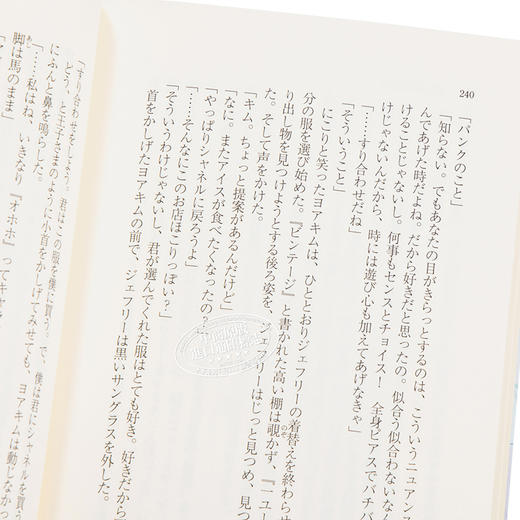 240
「パンクのこと」
「知らない。でもあなたの目がきらっとするのは、こういうニュアンス
んであげた時だよね。だから好きだと思ったの。似合う似合わないなん
けることじゃないし。何事もセンスとチョイス! 全身ピアスでバチバ
けじゃないんだから、時には遊び心も加えてあげなきゃ」
「……すり合わせだね」
「そういうこと」
にこりと笑ったヨアキムは、ひととおりジェフリーの着替えを終わらせ
分の服を選び始めた。『ビンテージ』と書かれた高い棚は覗かず、『一ユー
り出し物を見つけようとする後ろ姿を、ジェフリーはじっと見つめ、見つ
た。そして声をかけた。
「キム。ちょっと提案があるんだけど」
「なに。またアイスが食べたくなったの?
「やっぱりシャネルに戻ろうよ」
「……そんなにこのお店ほこりっぽい?」
「そういうわけじゃないし、君が選んでくれた服はとても好き。好きだから
首をかしげたヨアキムの前で、ジェフリーは黒いサングラスを外した。
「すり合わせをしよう。君はこの服を僕に買う。で、僕は君にシャネルを
どう、と王子さまのように小首をかしげてみせても、ヨアキムは動じなかっ
にふんと鼻を鳴らした。
「……私はね、いきなり『オホホ』ってキャ
脚は馬のまま」